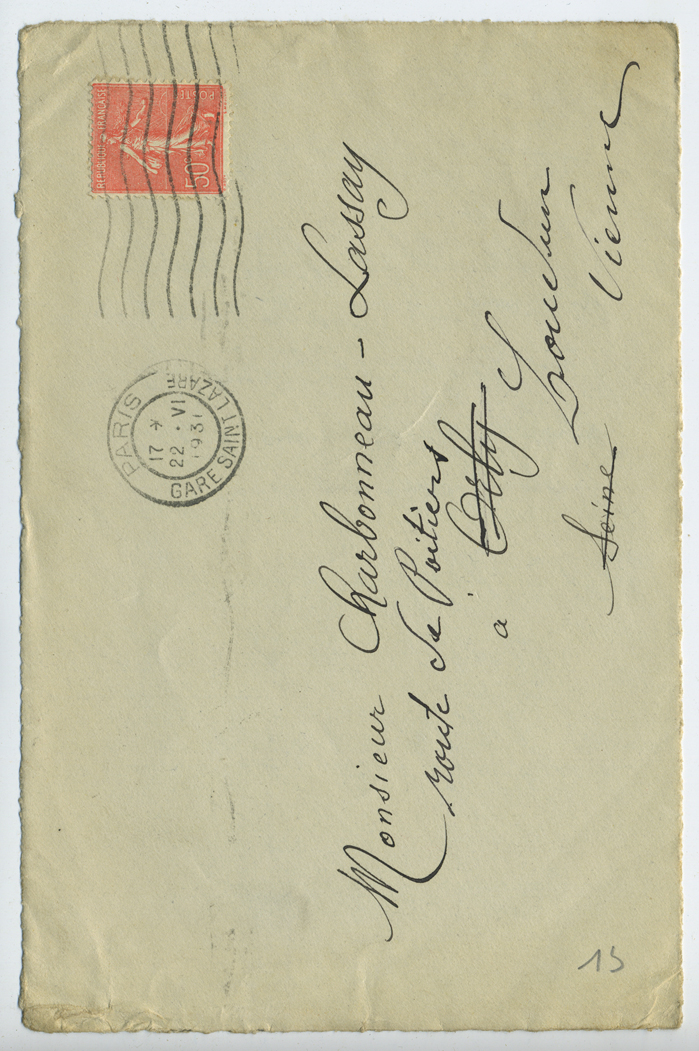 REPUBLIQUE FRANÇAISE
POSTES
50c
PARIS
17 *
22 · VI
1931
GARE SAINT LAZARE
Monsieur Charbonneau-Lassay
route de Poitiers
à Orly Loudun
Seine Vienne
15